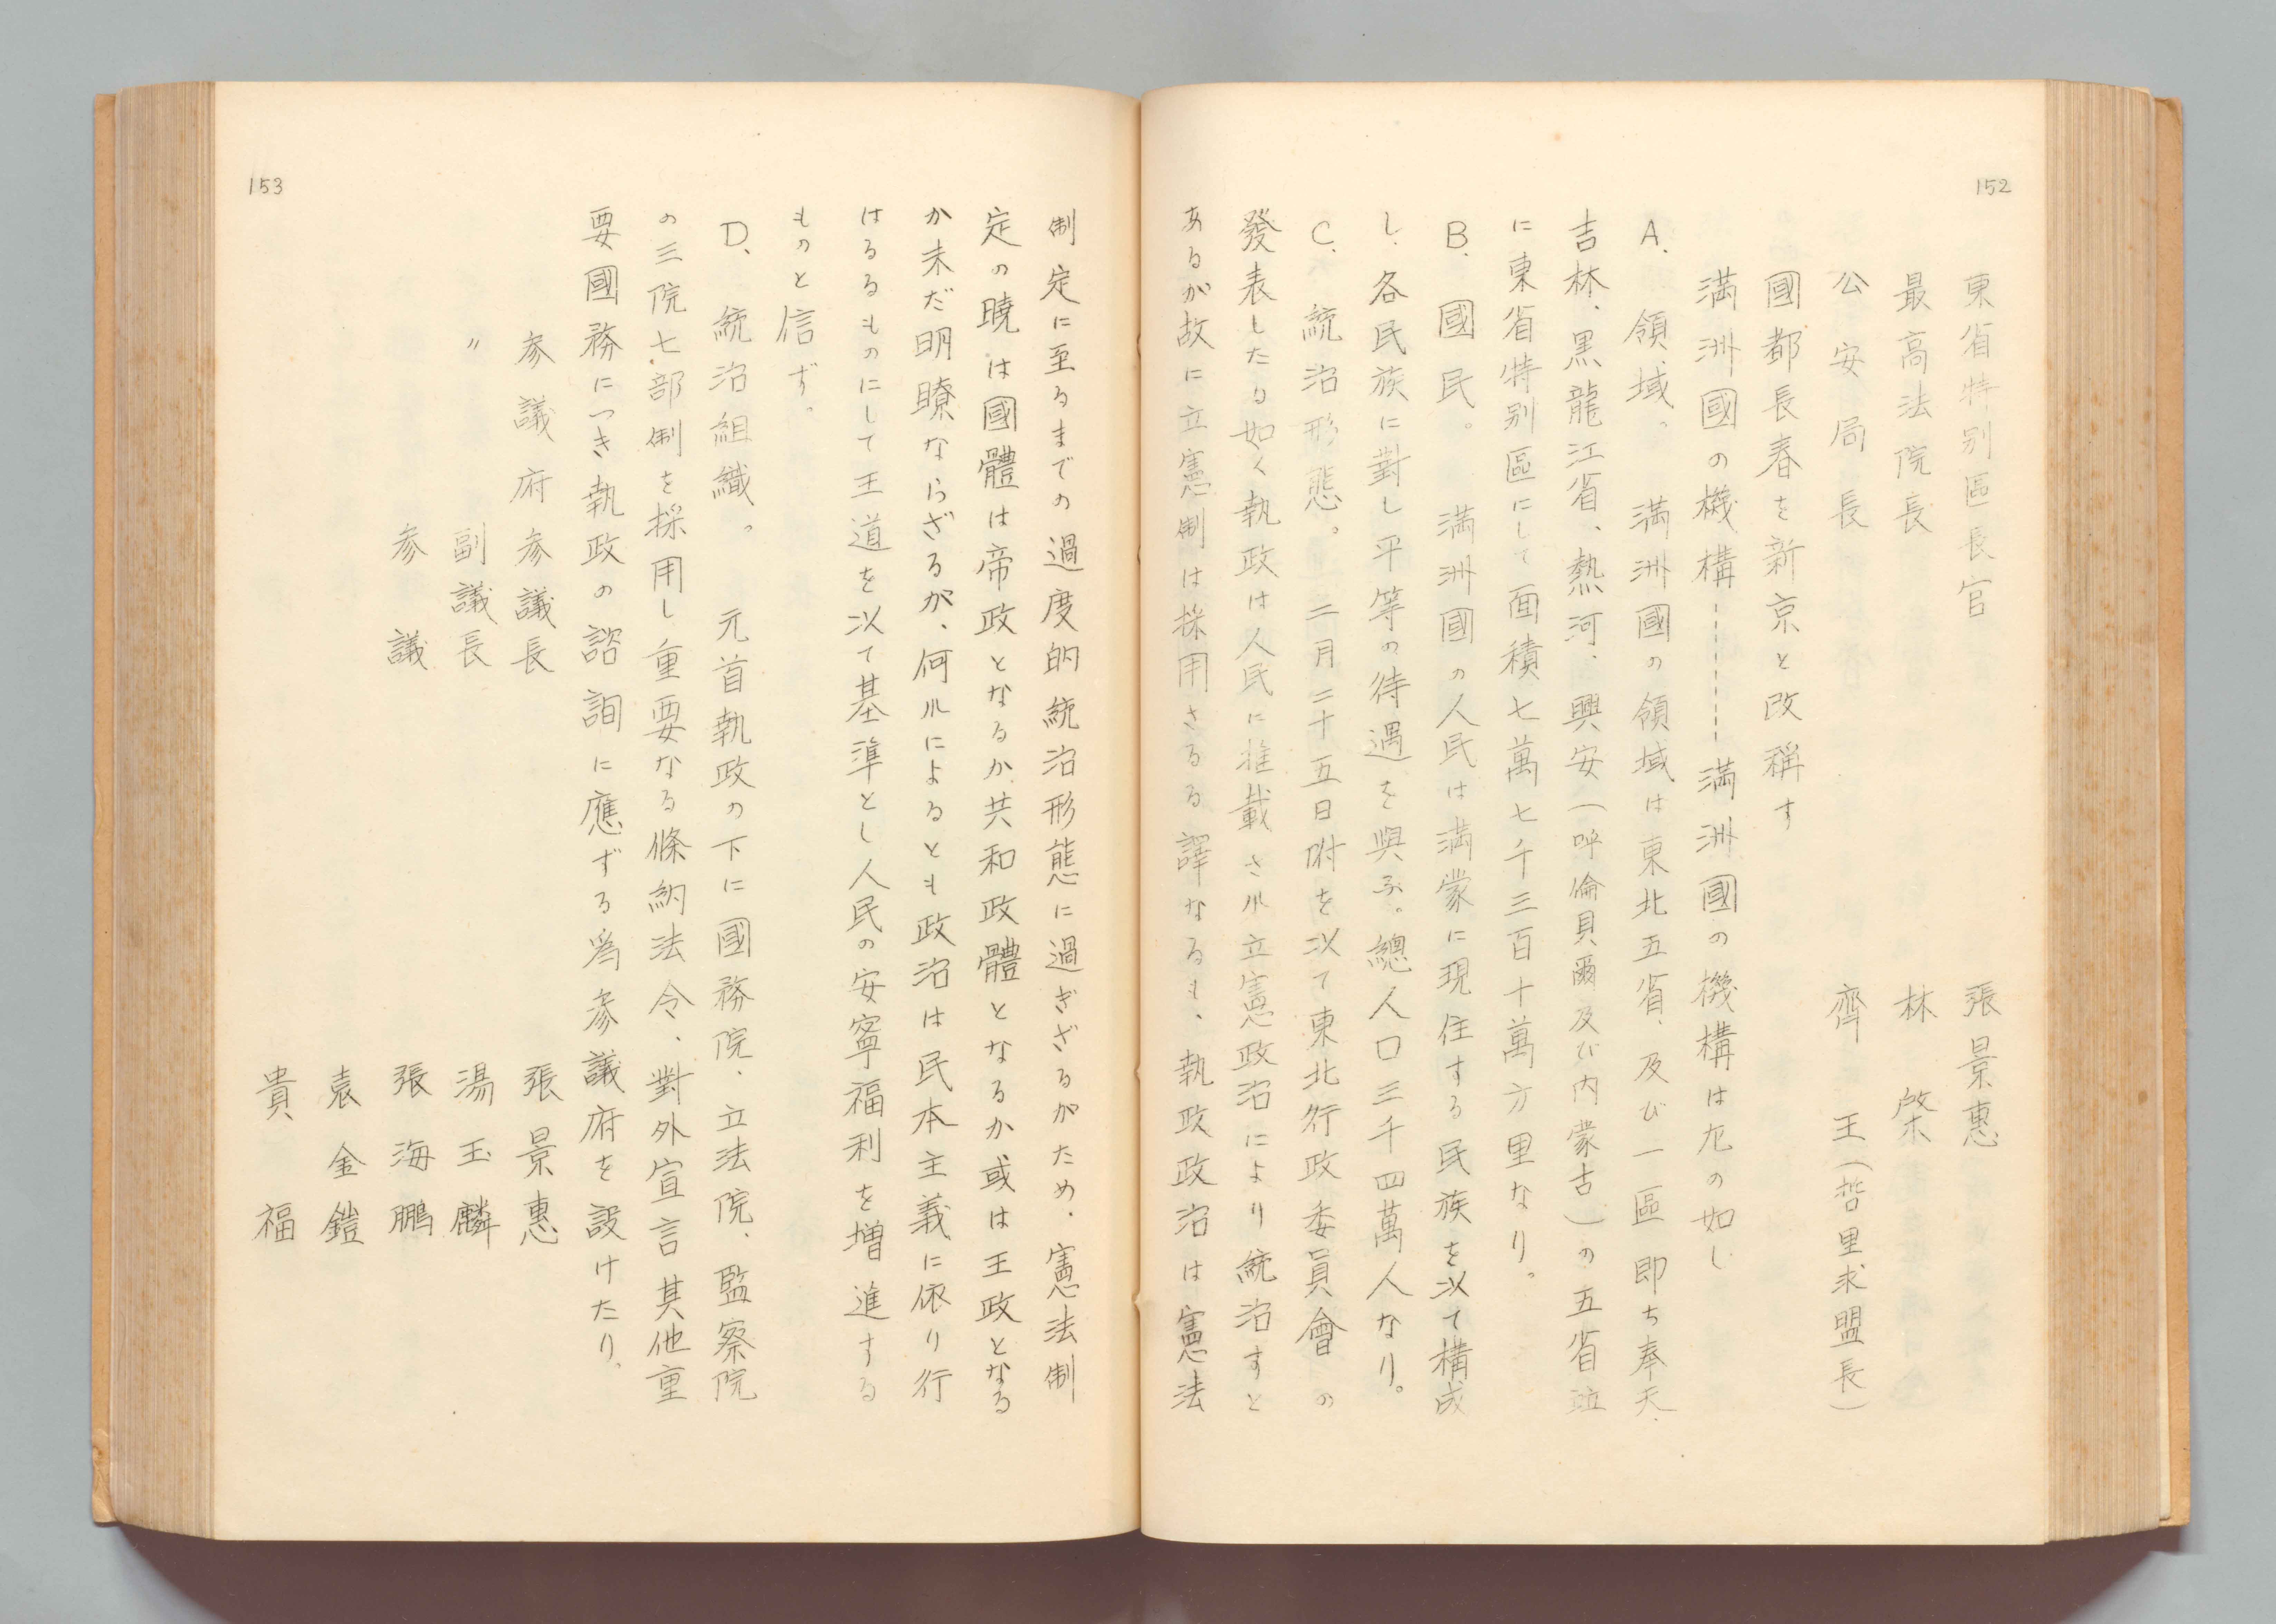 152
東省特別區長官　張景惠
最高法院長　林　棨
公安局長　齊　王(哲里木盟長)
國都長春を新京と改稱す
満洲國の機構------満洲國の機構は左の如し
A. 領域。　満洲國の領域は東北五省、及び一區即ち奉天、
吉林、黒龍江省、熱河、興安(呼倫貝爾及び内蒙古)の五省竝
に東省特別區にして面積七萬七千三百十萬方里なり。
B. 國民。　満洲國の人民は満蒙に現住する民族を以て構成
し、各民族に對し平等の待遇を與ふ。總人口三千四萬人なり。
C. 統治形態。　二月二十五日附を以て東北行政委員會の
發表したる如く執政は人民に推載され立憲政治により統治すと
あるが故に立憲制は採用さるる譯なるも、執政政治は憲法
153
制定に至るまでの過度的統治形態に過ぎざるがため、憲法制
定の曉は國體は帝政となるか共和政體となるか或は王政となる
か未だ明瞭ならざるが、何れによるとも政治は民本主義に依り行
はるるものにして王道を以て基準とし人民の安寧福利を増進する
ものと信ず。
D. 統治組織。　元首執政の下に國務院、立法院、監察院
の三院七部制を採用し重要なる條約法令、對外宣言其他重
要國務につき執政の諮詢に應ずる爲参議府を設けたり。
参議府参議長　張景惠
〃　副議長　湯玉麟
参議　張海鵬
袁金鎧
貴　福